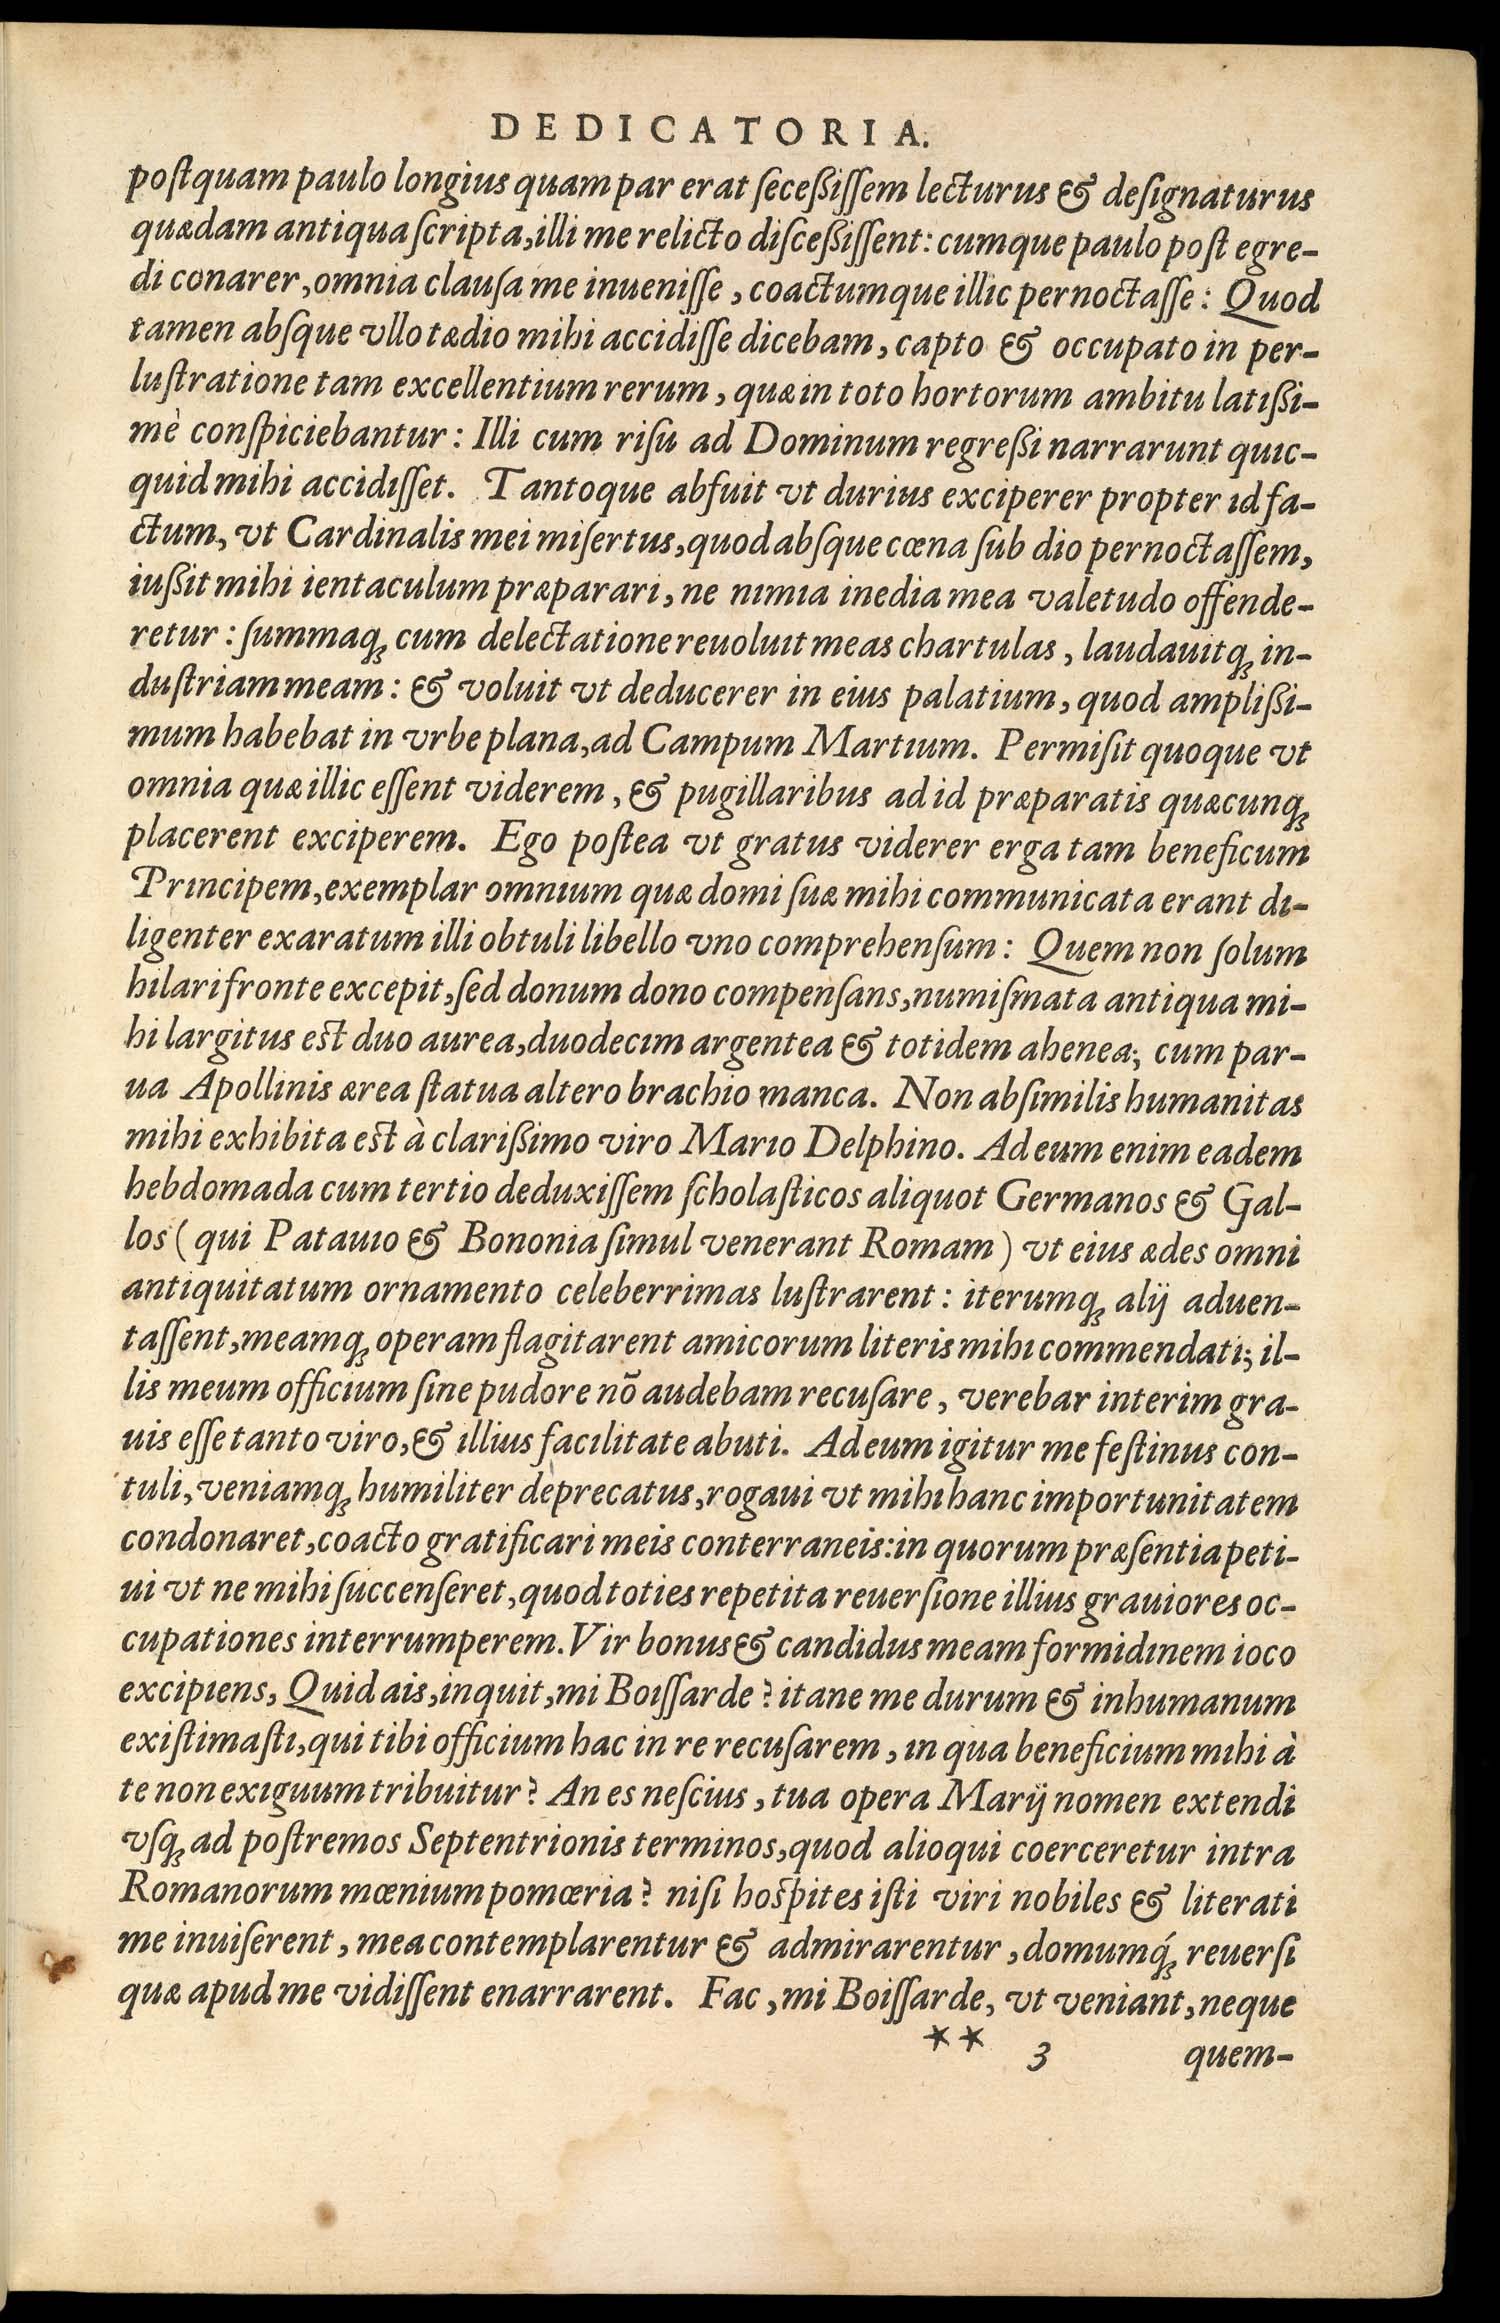 DEDICATORIA.
postquam paulo longius quam par erat secessissem lecturus & designaturus
quædam antiqua scripta, illi me relicto discessissent: cumque paulo post egre-
di conarer, omnia clausa me inuenisse, coactumque illic pernoctasse: Quod
tamen absque vllo tædio mihi accidisse dicebam, capto & occupato in per-
lustratione tam excellentium rerum, quæ in toto hortorum ambitu latissi-
mè conspiciebantur: Illi cum risu ad Dominum regressi narrarunt quic-
quid mihi accidisset. Tantoque abfuit vt durius exciperer propter id fa-
ctum, vt Cardinalis mei misertus, quod absque cœna sub dio pernoctassem,
iussit mihi ientaculum præparari, ne nimia inedia mea valetudo offende-
retur: summaq; cum delectatione reuoluit meas chartulas, laudauitq; in-
dustriam meam: & voluit vt deducerer in eius palatium, quod amplissi-
mum habebat in vrbe plana, ad Campum Martium. Permisit quoque vt
omnia quæ illic essent viderem, & pugillaribus ad id præparatis quæcunq;
placerent exciperem. Ego postea vt gratus viderer erga tam beneficum
Principem, exemplar omnium quæ domi suæ mihi communicata erant di-
ligenter exaratum illi obtuli libello vno comprehensum: Quem non solum
hilari fronte excepit, sed donum dono compensans, numismata antiqua mi-
hi largitus est duo aurea, duodecim argentea & totidem ahenea; cum par-
ua Apollinis ærea statua altero brachio manca. Non absimilis humanitas
mihi exhibita est à clarissimo viro Mario Delphino. Ad eum enim eadem
hebdomada cum tertio deduxissem scholasticos aliquot Germanos & Gal-
los (qui Patauio & Bononia simul venerant Romam) vt eius ædes omni
antiquitatum ornamento celeberrimas lustrarent: iterumq; alij aduen-
tassent, meamq; operam flagitarent amicorum literis mihi commendati; il-
lis meum officium sine pudore nõ audebam recusare, verebar interim gra-
uis esse tanto viro, & illius facilitate abuti. Ad eum igitur me festinus con-
tuli, veniamq; humiliter deprecatus, rogaui vt mihi hanc importunitatem
condonaret, coacto gratificari meis conterraneis: in quorum præsentia peti-
ui vt ne mihi succenseret, quod toties repetita reuersione illius grauiores oc-
cupationes interrumperem. Vir bonus & candidus meam formidinem ioco
excipiens, Quid ais, inquit, mi Boissarde? itane me durum & inhumanum
existimasti, qui tibi officium hac in re recusarem, in qua beneficium mihi à
te non exiguum tribuitur? An es nescius, tua opera Marij nomen extendi
vsq; ad postremos Septentrionis terminos, quod alioqui coerceretur intra
Romanorum mœnium pomœria? nisi hospites isti viri nobiles & literati
me inuiserent, mea contemplarentur & admirarentur, domumq́; reuersi
quæ apud me vidissent enarrarent. Fac, mi Boissarde, vt veniant, neque
** 3 quem-